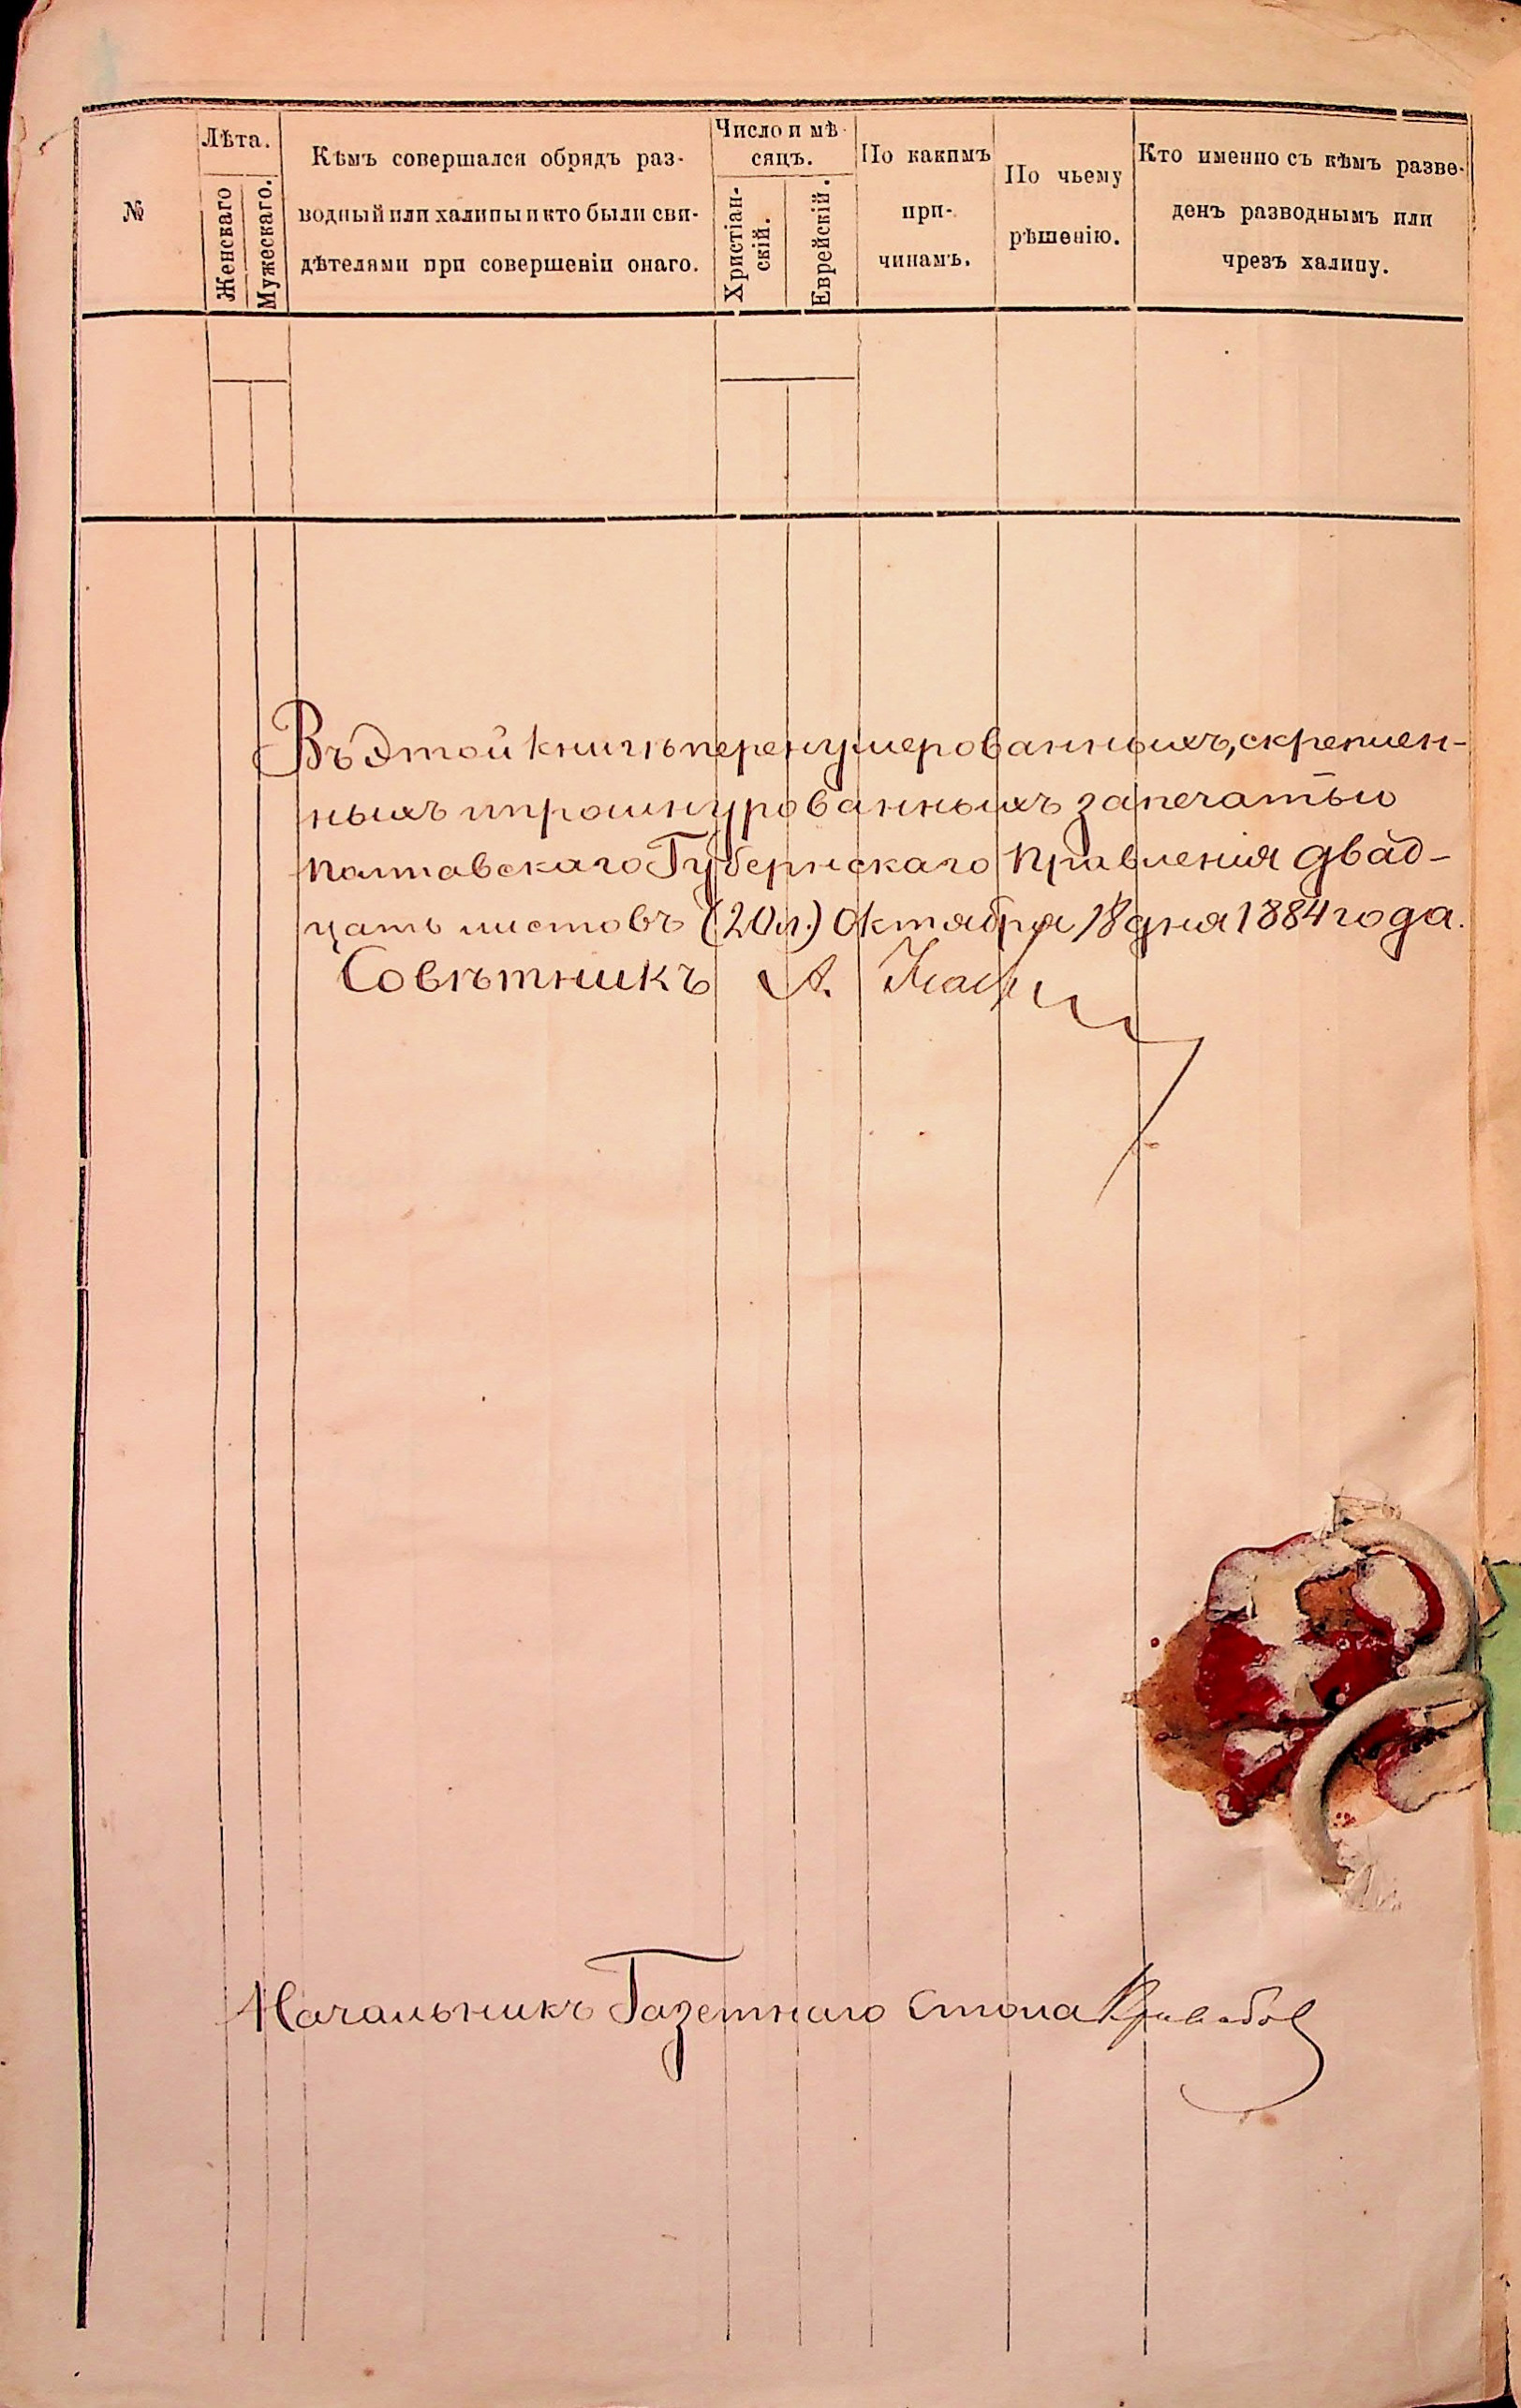 №
Лѣта.
Женскаго
Мужескаго.
Кѣмъ совершался обрядъ раз-
водный или халицы и кто были сви-
дѣтелями при совершеніи онаго.
Число и мѣ-
сяцъ.
Христіан-
скій.
Еврейскій.
По какимъ
при-
чинамъ.
По чьему
рѣшенію.
Кто именно съ кѣмъ разве-
денъ разводнымъ или
чрезъ халицу.
Въ Этой книгѣ перенумерованныхъ, скреплен-
ныхъ и прошнурованныхъ за печатью
Полтавскаго Губернскаго Правленія двад-
цать листовъ (20 л.) Октября 18 дня 1884 года.
Совѣтникъ А.
Начальникъ Газетнаго Стола